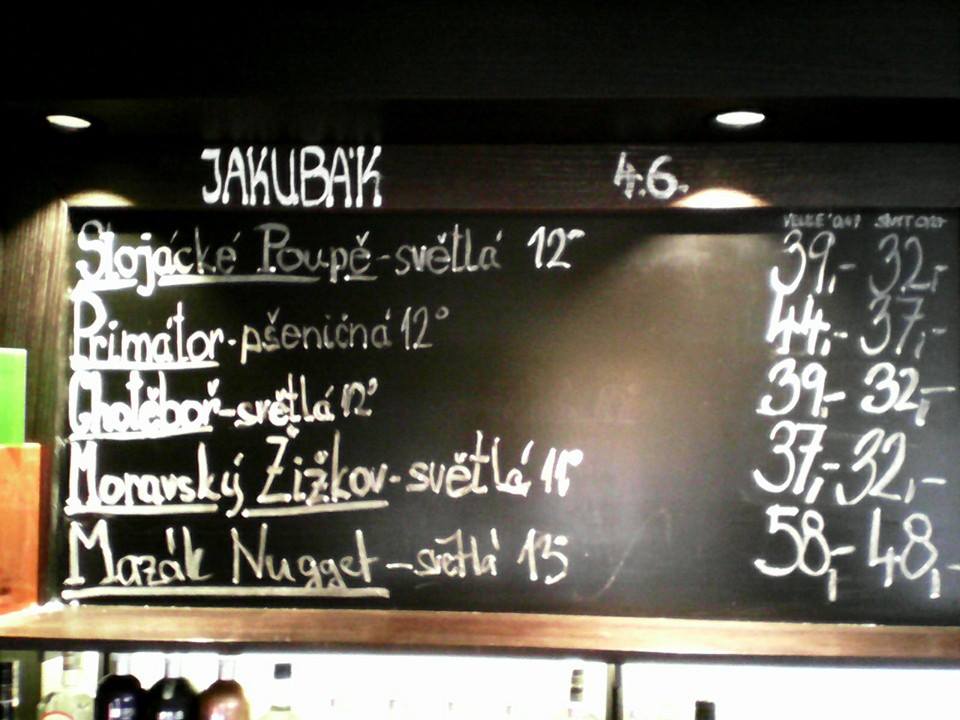 JAKUBÁK 4.6.
Slojácké Poupě - světlá 12° 39,- 32,-
Primátor - pšeničná 12° 44,- 37,-
Chotěboř - světlá 12° 39,- 32,-
Moravský Žižkov - světlá 11° 37,- 32,-
Mazák Nugget - světlá 13° 58,- 48,-